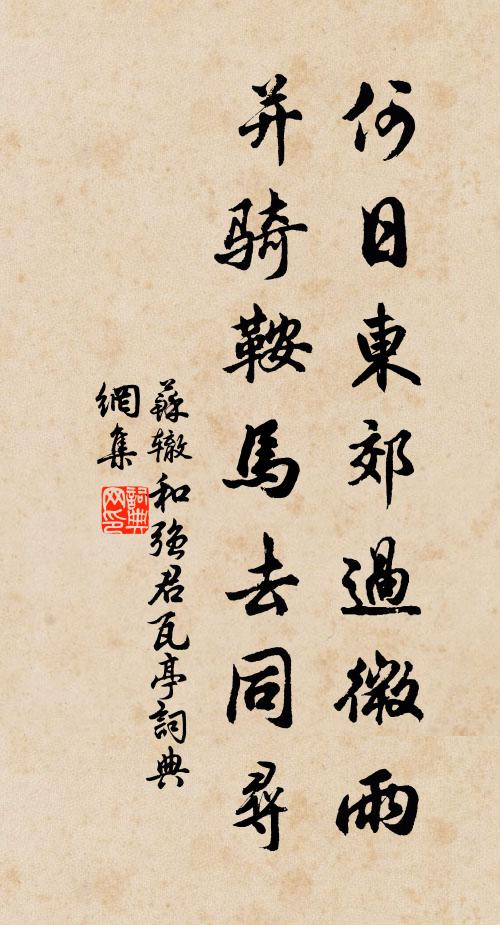 何日東郊過微雨
并騎鞍馬去同尋
蘇辙和強君瓦亭詞典
網集
詞典
网印